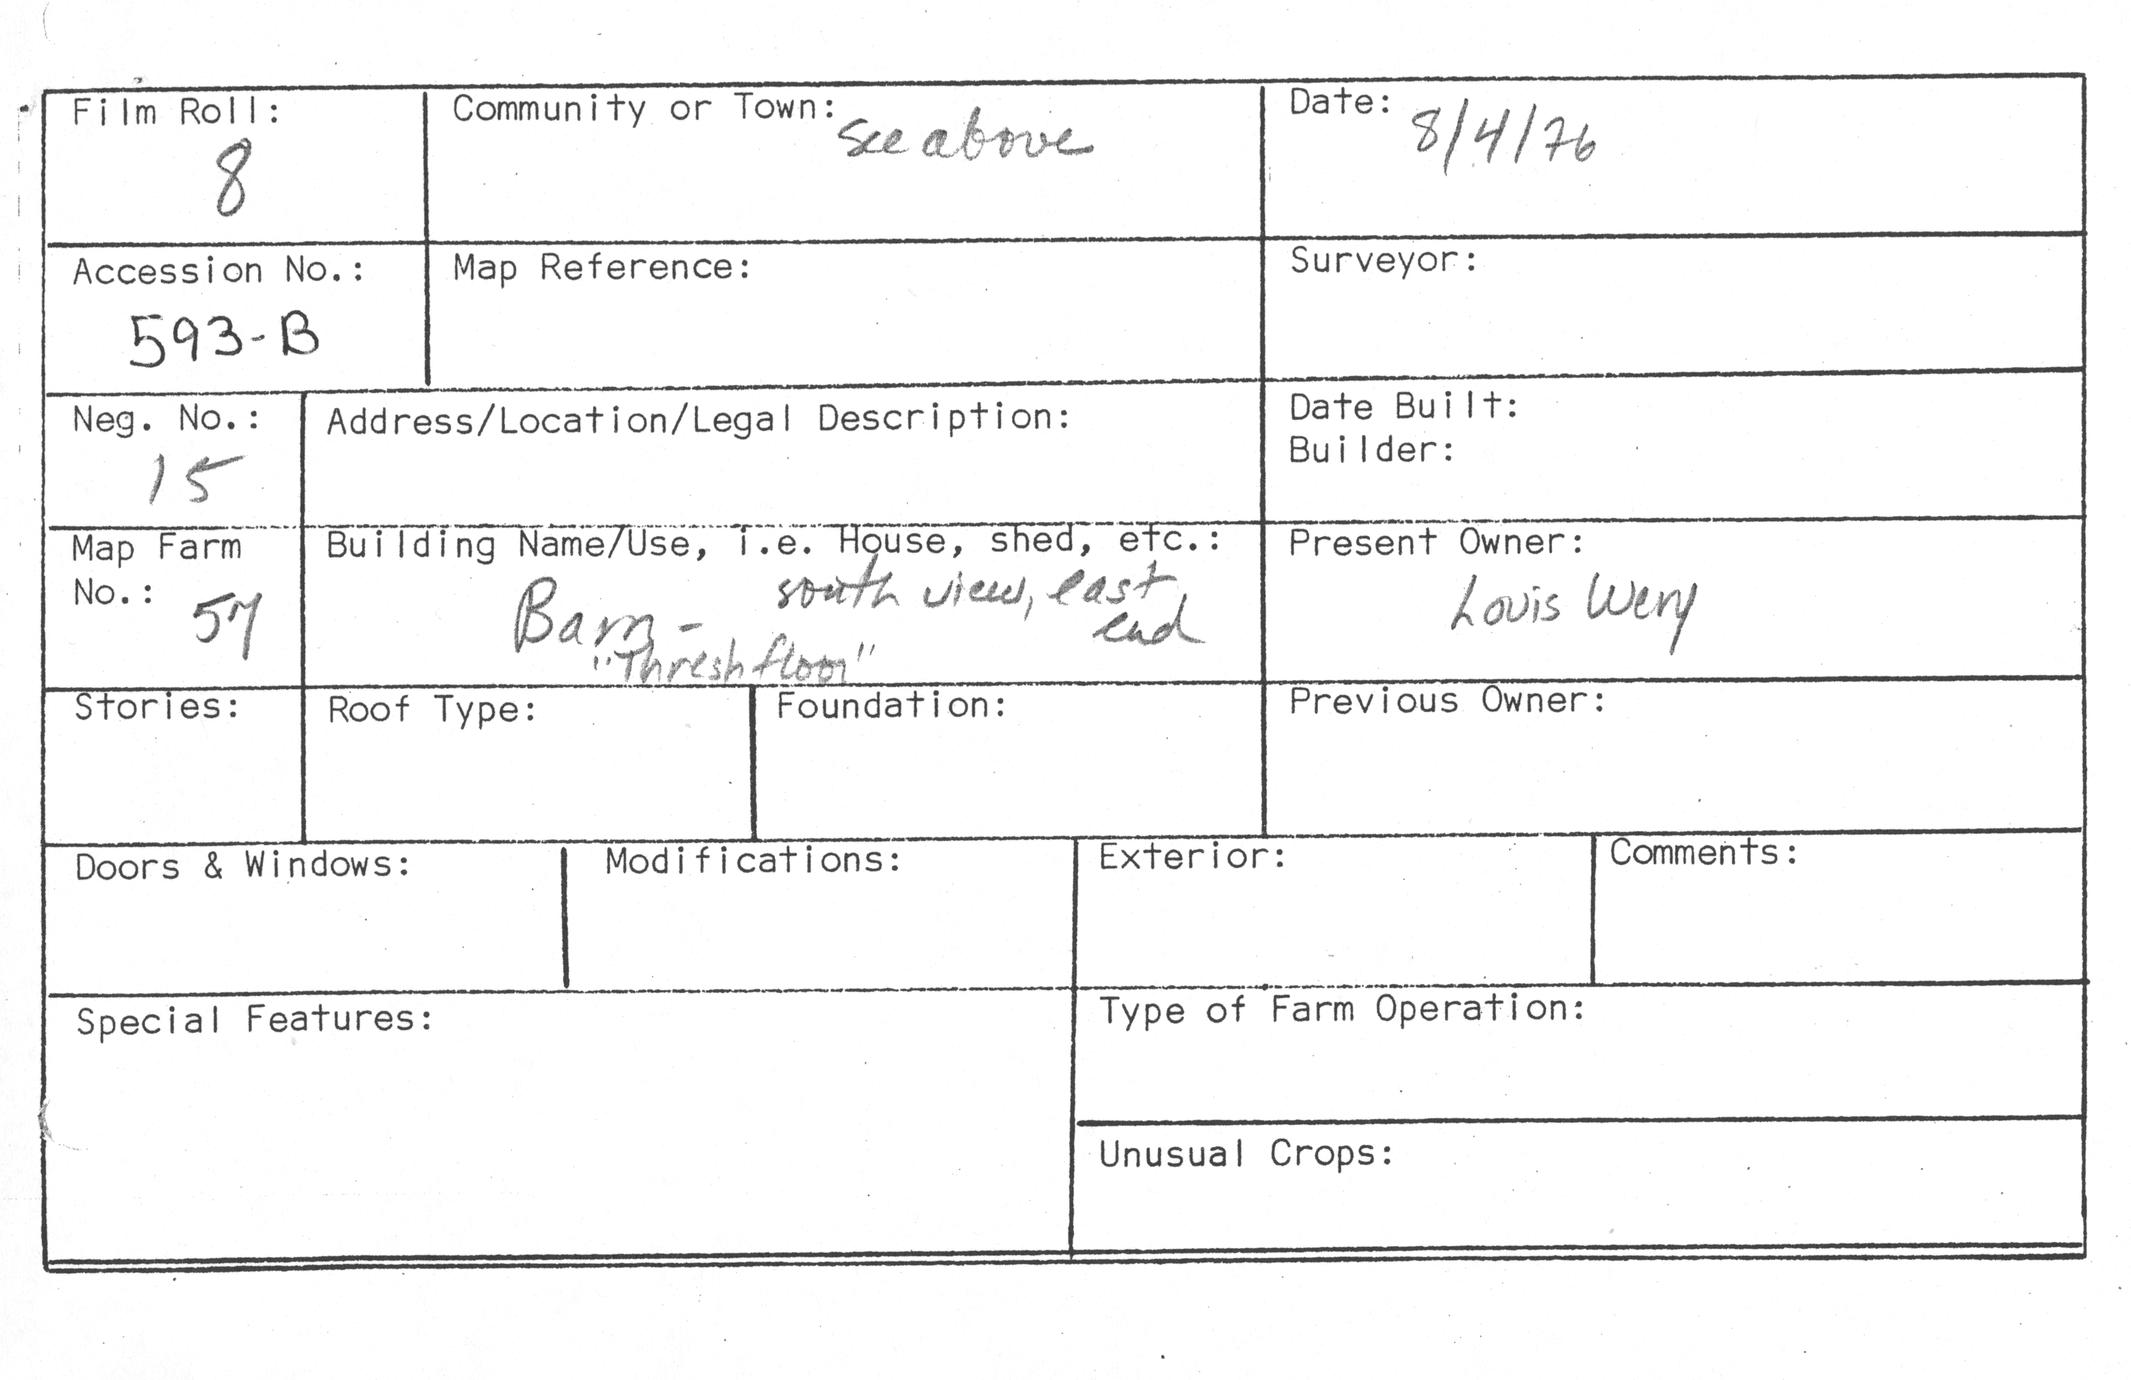 Film Roll:
8
Community or Town: see above
Date: 8/4/76
Accession No.:
593-B
Map Reference:
Surveyor:
Neg. No.:
15
Address/Location/Legal Description:
Date Built:
Builder:
Map Farm
No.: 57
Building Name/Use, i.e. House, shed, etc.:
Barn - south view, east
end
"Threshfloor"
Present Owner:
Louis Wery
Stories:
Roof Type:
Foundation:
Previous Owner:
Doors & Windows:
Modifications:
Exterior:
Comments:
Special Features:
Type of Farm Operation:
Unusual Crops: